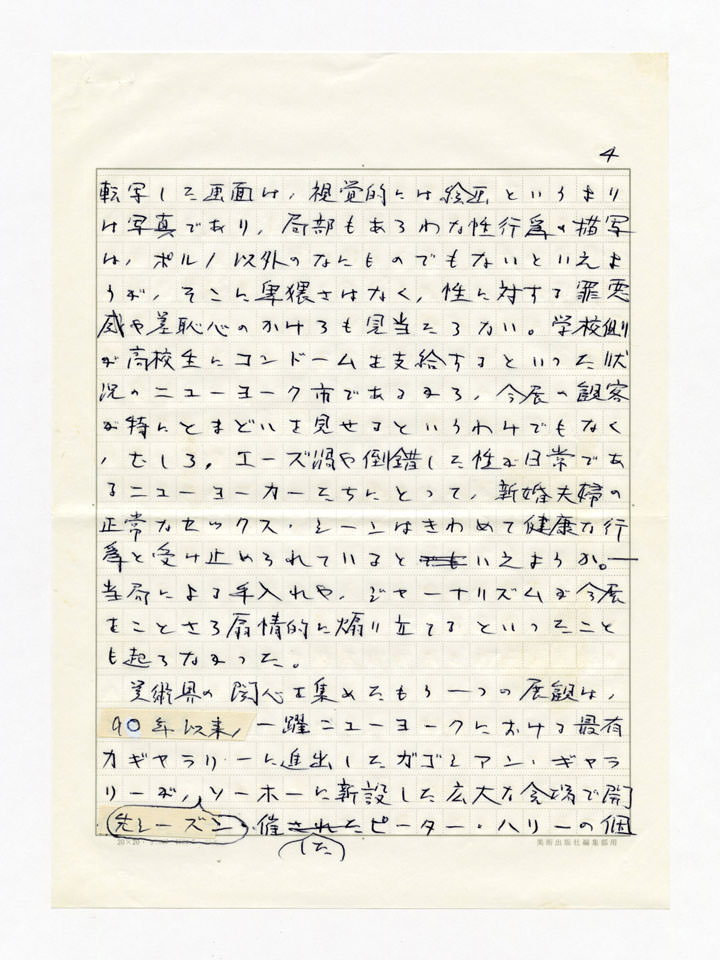 4
転写した画面は，視覚的には絵画というより
は写真であり，局部もあらわな性行為の描写
は，ポルノ以外のなにものでもないといえよ
うが，そこに卑猥さはなく，性に対する罪悪
感や羞恥心のかけらも見当たらない。学校側
が高校生にコンドームを支給するといった状
況のニューヨーク市であるから，今展の観客
が特にとまどいを見せるというわけでもなく
，むしろ，エーズ渦や倒錯した性が日常であ
るニューヨーカーたちにとって，新婚夫婦の
正常なセックス・シーンはきわめて健康な行
為と受け止められているといえようか。―
当局による手入れや，ジャーナリズムが今展
をことさら扇情的に煽り立てるといったこと
も起らなかった。
美術界の関心を集めたもう一つの展観は，
90年以来，一躍ニューヨークにおける最有
力ギャラリーに進出したガゴシアン・ギャラ
リーが，ソーホーに新設した広大な会場で開
先シーズン，催されたピーター・ハリーの個
（た）
20×20
美術出版社編集部用